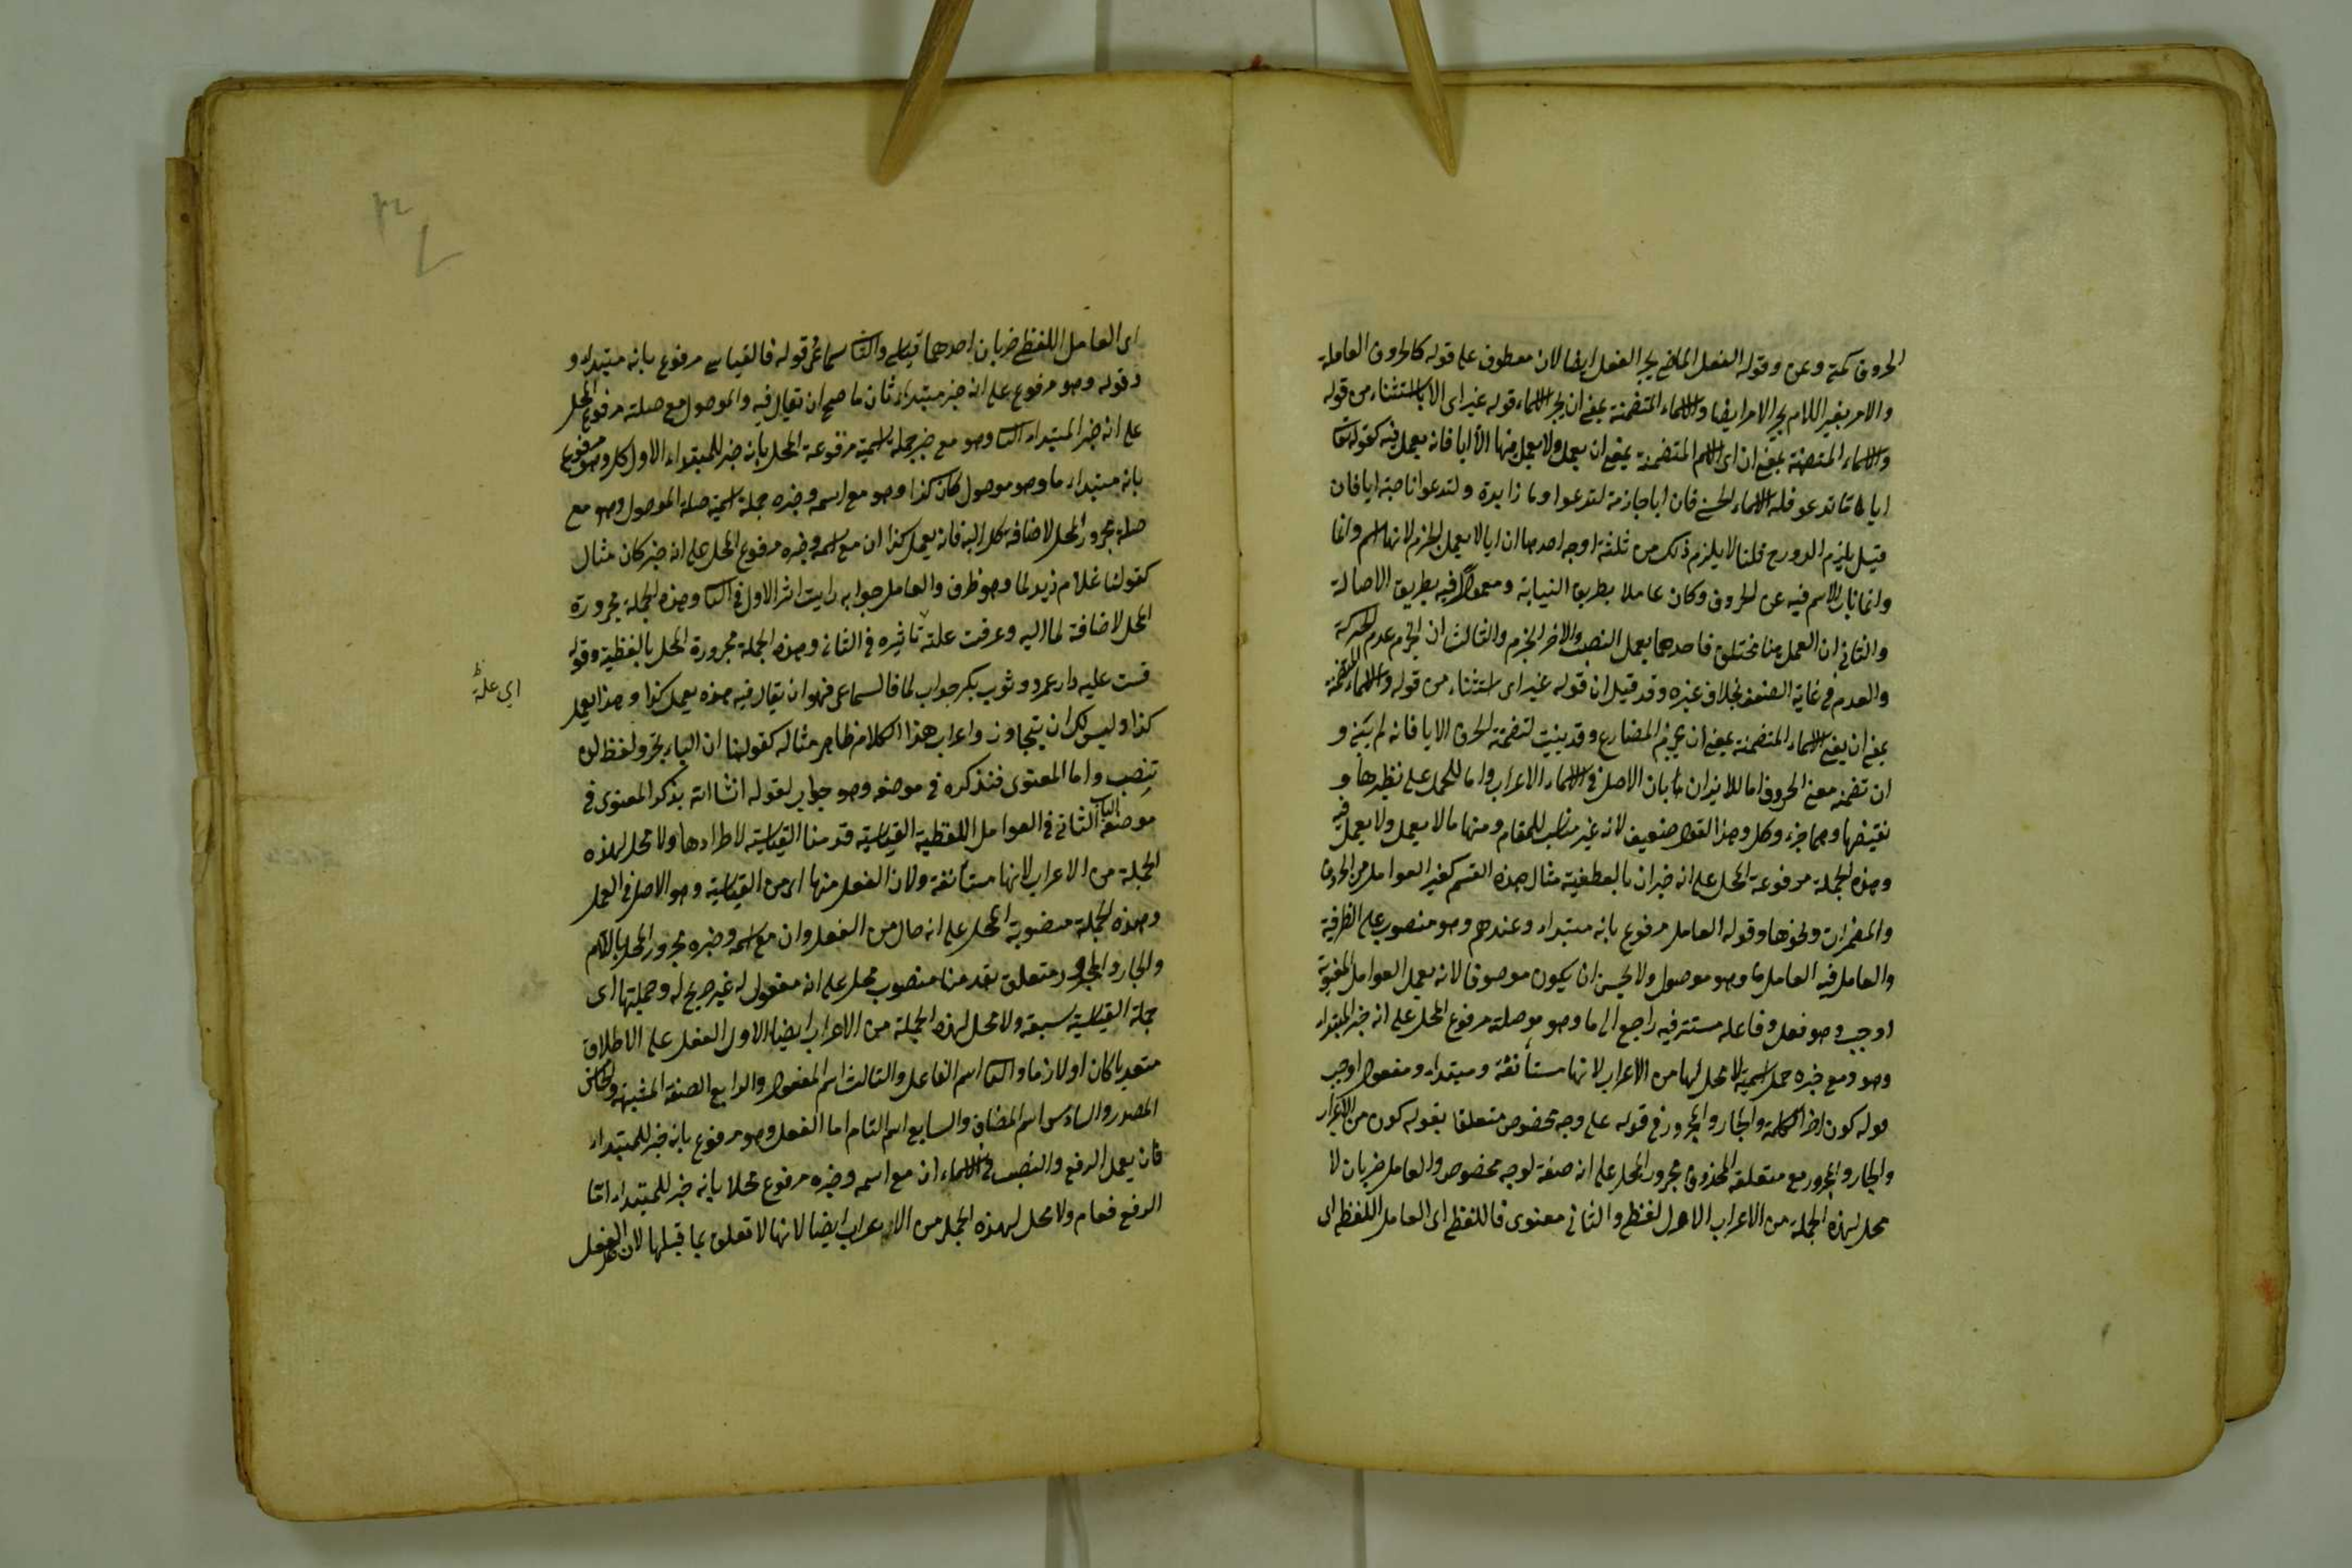 الحروف كمية وعن وقوله الفعل الماضى بجر الفعل ايضا لانه معطوف على قوله كالحروف العاملة
والامر بغير اللام بجر الامر ايضا والاسماء المتضمنة بمعنى ان بجر الاسماء قوله غير اى الا بالاستثناء من قوله
والاسماء المتضمنة بمعنى ان اى الاسم المتضمنة بمعنى ان يعمل ولا يعمل فيها الا ايا فانه يعمل فيه كقوله تعالى
ايا ما تدعو فله الاسماء الحسنى فان ايا جازمة لتدعوا وما زايدة ولتدعوا ناصبة ايا فان
قيل يلزم الدور قلنا لا يلزم ذلك من ثلثة اوجه احدها ان ايا لا يعمل الجزم لانها اسم وانما
وانما ناب الاسم فيه عن الحروف وكان عاملا بطريق النيابة ومعمولا فيه بطريق الاصالة
والثانى ان العمل هنا مختلف فاحدهما يعمل النصب والاخر الجزم والثالث ان الجزم عدم الحركة
والعدم فى غاية الضعف بخلاف غيره وقد قيل ان قوله غير اى استثناء من قوله والاسماء المتضمنة
بمعنى ان يعنى الاسماء المتضمنة بمعنى ان يجزم المضارع وقد بنيت لتضمنه الحرف الا ايا فانه لم يبنى و
ان تضمنه معنى الحروف اما للايذان بأن الاصل فى الاسماء الاعراب واما للحمل على نظيرها و
نقيضها وهما جزء وكل وهذا القول ضعيف لانه غير مناسب للمقام ومنها ما لا يعمل ولا يعمل فيه
وهذه الجملة مرفوعة المحل على انه خبر ان بالعطفية مثال هذه القسم كغير العوامل من الحروف
والمضمرات ونحوها وقوله العامل مرفوع بانه مبتداء وعندهم وهو منصوب على الظرفية
والعامل فيه العامل ما وهو موصول ولا يحسن ان يكون موصوفا لانه يعمل العوامل المعنوية
اوجب وهو فعل وفاعله مستتر فيه راجع الى ما وهو مع صلته مرفوع المحل على انه خبر المبتداء
وهو ومع خبره جملة اسمية لا محل لها من الاعراب لانها مستأنفة ومبتداء ومفعول اوجب
قوله كون اخر الكلمة والجار والمجرور فى قوله على وجه مخصوص متعلقا بقوله كون من الاعراب
والجار والمجرور مع متعلقه المحذوف مجرور المحل على انه صفة لوجه مخصوص والعامل ضربان لا
محل لهذه الجملة من الاعراب الاول لفظى والثانى معنوى فاللفظى اى العامل اللفظى اى
اى العامل اللفظى ضربان احدهما قياسى والثانى سماعى قوله فالقياسى مرفوع بانه مبتداء و
وقوله وهو مرفوع على انه خبر مبتداء ثان ما صح ان يقال فيه والموصول مع صلته مرفوع المحل
على انه خبر المبتداء الثانى وهو مع خبره جملة اسمية مرفوعة المحل بانه خبر للمبتداء الاول كل وهو مرفوع
بانه مبتداء ما وهو موصول كان كذا وهو مع اسمه وخبره جملة اسمية صلة الموصول وهو مع
صلته مجرور المحل لاضافة كل اليه فانه يعمل كذا ان مع اسمه وخبره مرفوع المحل على انه خبر كان مثال
كقولنا غلام زيد لما وهو ظرف والعامل جوابه رايت اثر الاول فى الثانى وهذه الجملة مجرورة
المحل لاضافة لما اليه وعرفت علة تاثيره فى الثانى وهذه الجملة مجرورة المحل بالعطفية وقوله
قست عليه دار عمرو وثوب بكر جواب لما فالسماعى فهو ان يقال فيه هذه يعمل كذا وهذا يعمل
كذا وليس لك ان يتجاوز واعراب هذا الكلام ظاهر مثاله كقولنا ان الباء يجر ولفظ لن
تنصب واما المعنوى فنذكره فى موضعه وهو جواب لقوله ان شاء الله يذكر المعنوى فى
موضعه الباب الثانى فى العوامل اللفظية القياسية قدمنا القياسية لاطرادها ولا محل لهذه
الجملة من الاعراب لانها مستأنفة ولان الفعل منها اى من القياسية وهو الاصل فى العمل
وهذه الجملة منصوبة المحل على انه حال من الفعل وان مع اسمه وخبره مجرور المحل باللام
والجار والمجرور متعلق بقدمنا منصوب محله على انه مفعول له غير صريح له وجملتها اى
جملة القياسية سبعة ولا محل لهذه الجملة من الاعراب ايضا الاول الفعل على الاطلاق
متعديا كان او لازما والثانى اسم الفاعل والثالث اسم المفعول والرابع الصفة المشبهة والخامس
المصدر والسادس اسم المضاف والسابع اسم التام اما الفعل وهو مرفوع بانه خبر للمبتداء
فان يعمل الرفع والنصب فى الاسماء ان مع اسمه وخبره مرفوع محلا بانه خبر للمبتداء اما
الرفع فعام ولا محل لهذه الجملة من الاعراب ايضا لانها لا تعلق بما قبلها لان الفعل
اى علة